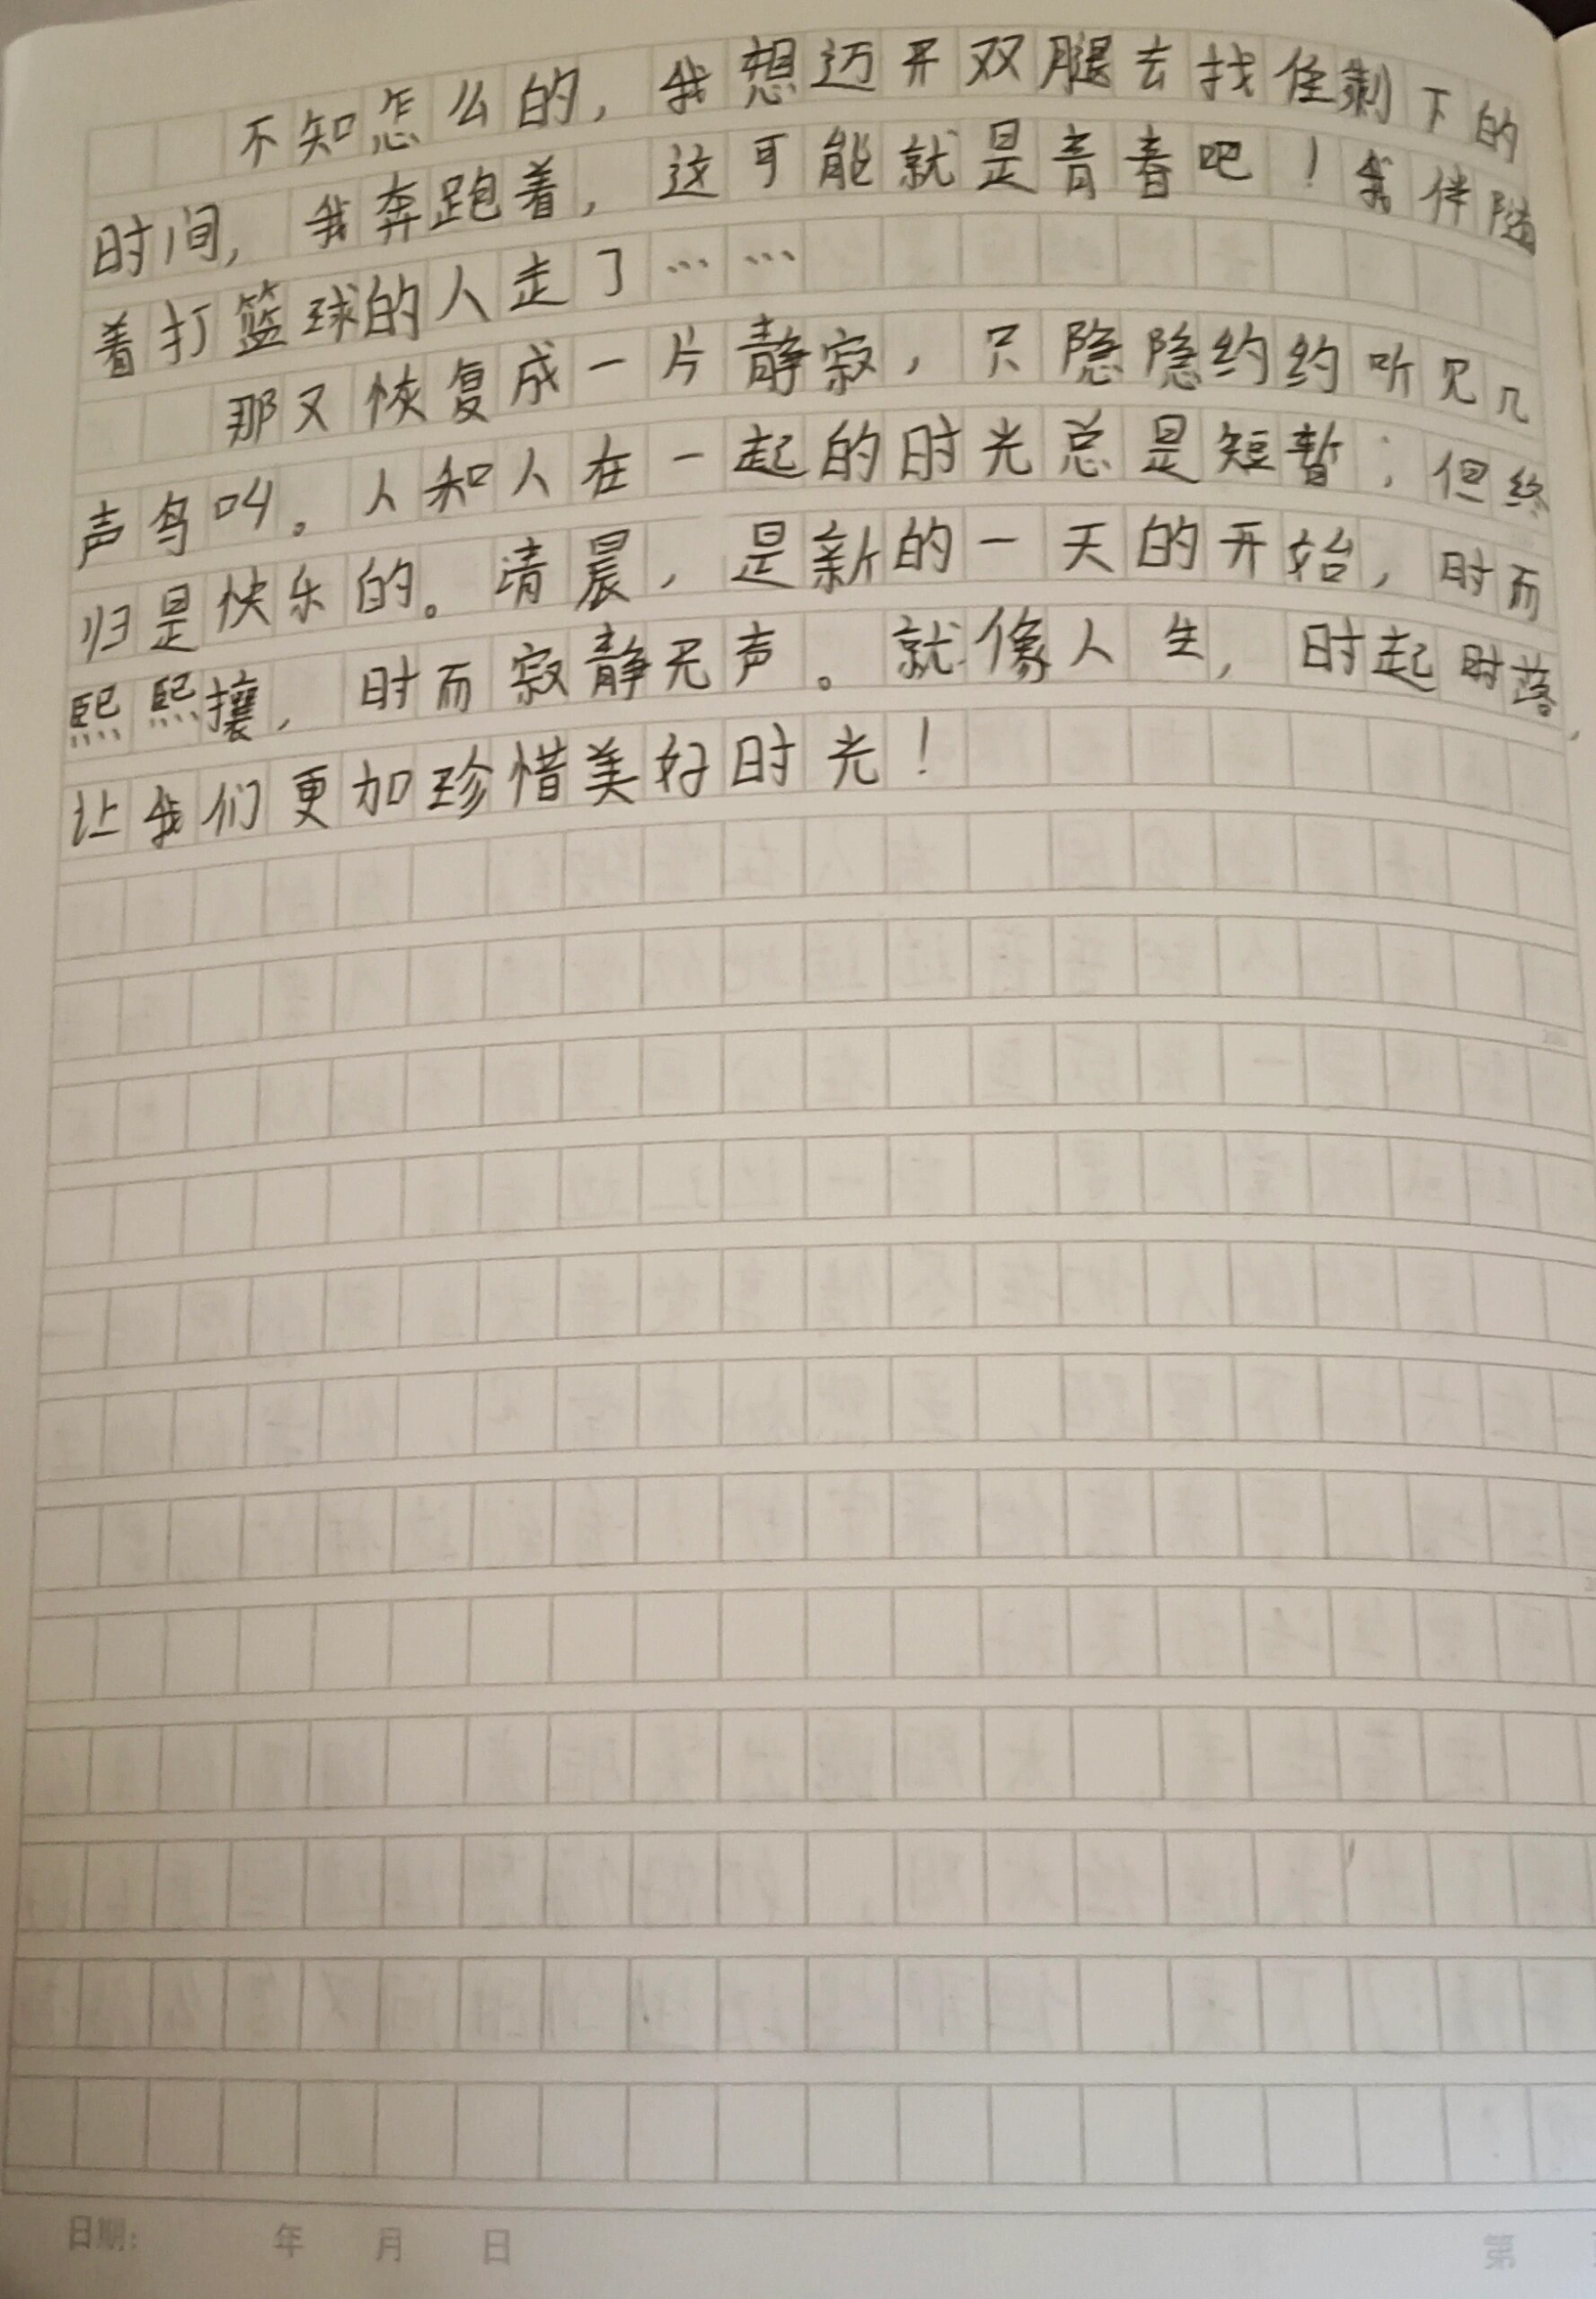 不知怎么的，我想迈开双腿去找住剩下的
时间，我奔跑着，这可能就是青春吧！我伴随
着打篮球的人走了……
那又恢复成一片静寂，只隐隐约约听见几
声鸟叫。人和人在一起的时光总是短暂；但终
归是快乐的。清晨，是新的一天的开始，时而
熙熙攘，时而寂静无声。就像人生，时起时落，
让我们更加珍惜美好时光！
日期： 年 月 日